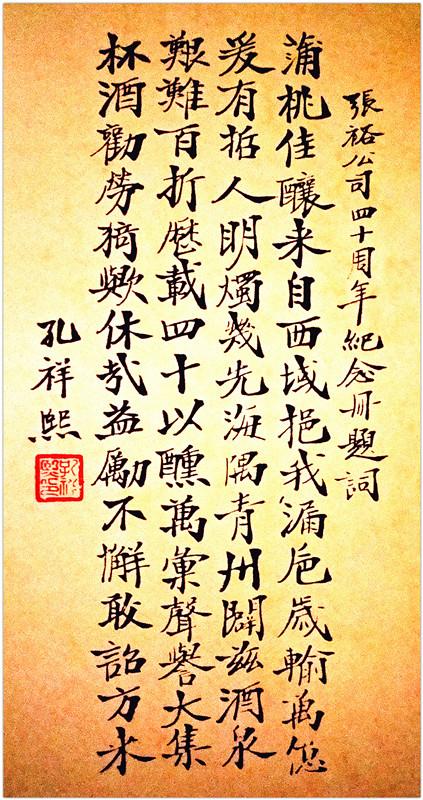 張裕公司四十周年紀念冊題詞
蒲桃佳釀来自西域挹我漏卮歲輸萬億
爰有哲人明燭幾先海隅青州闢兹酒泉
艱難百折歷載四十以醺萬彙聲譽大集
杯酒勸勞猗歟休哉益勵不懈敢詔方来
孔祥熙